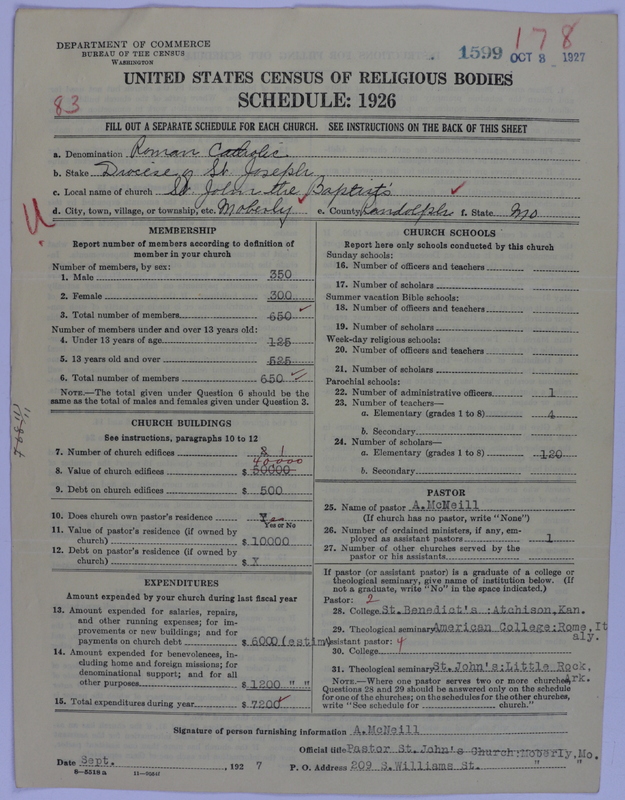 DEPARTMENT OF COMMERCE
BUREAU OF THE CENSUS
WASHINGTON
1599 OCT 8 1927
178
UNITED STATES CENSUS OF RELIGIOUS BODIES
SCHEDULE: 1926
83
FILL OUT A SEPARATE SCHEDULE FOR EACH CHURCH. SEE INSTRUCTIONS ON THE BACK OF THIS SHEET
a. Denomination Roman Catholic
b. Stake Diocese of St. Joseph
c. Local name of church St. John the Baptist's
d. City, town, village, or township, etc. Moberly e. County Randolph f. State Mo
MEMBERSHIP
Report number of members according to definition of
member in your church
Number of members, by sex:
1. Male 350
2. Female 300
3. Total number of members 650
Number of members under and over 13 years old:
4. Under 13 years of age 125
5. 13 years old and over 525
6. Total number of members 650
NOTE.—The total given under Question 6 should be the
same as the total of males and females given under Question 3.
CHURCH BUILDINGS
See instructions, paragraphs 10 to 12
7. Number of church edifices X 1
40000
8. Value of church edifices $ 50000
9. Debt on church edifices $ 500
10. Does church own pastor's residence Yes
Yes or No
11. Value of pastor's residence (if owned by
church) $ 10000
12. Debt on pastor's residence (if owned by
church) $ X
EXPENDITURES
Amount expended by your church during last fiscal year
13. Amount expended for salaries, repairs,
and other running expenses; for im-
provements or new buildings; and for
payments on church debt $ 6000 (estim)
14. Amount expended for benevolences, in-
cluding home and foreign missions; for
denominational support; and for all
other purposes $ 1200 " "
15. Total expenditures during year $ 7200
CHURCH SCHOOLS
Report here only schools conducted by this church
Sunday schools:
16. Number of officers and teachers
17. Number of scholars
Summer vacation Bible schools:
18. Number of officers and teachers
19. Number of scholars
Week-day religious schools:
20. Number of officers and teachers
21. Number of scholars
Parochial schools:
22. Number of administrative officers 1
23. Number of teachers—
a. Elementary (grades 1 to 8) 4
b. Secondary
24. Number of scholars—
a. Elementary (grades 1 to 8) 120
b. Secondary
PASTOR
25. Name of pastor A.McNeill
(If church has no pastor, write "None")
26. Number of ordained ministers, if any, em-
ployed as assistant pastors 1
27. Number of other churches served by the
pastor or his assistants
If pastor (or assistant pastor) is a graduate of a college or
theological seminary, give name of institution below. (If
not a graduate, write "No" in the space indicated.)
Pastor: 2
28. College St.Benedict's :Atchison,Kan.
29. Theological seminary American College:Rome,It
aly.
Assistant pastor: 4
30. College
31. Theological seminary St.John's:Little Rock,
Ark.
NOTE.—Where one pastor serves two or more churches,
Questions 28 and 29 should be answered only on the schedule
for one of the churches; on the schedules for the other churches,
write "See schedule for church."
Signature of person furnishing information A.McNeill
Official title Pastor St.John's Church:Moberly,Mo.
Date Sept. , 1927 P. O. Address 209 S.Williams St. " "
8—5518 a